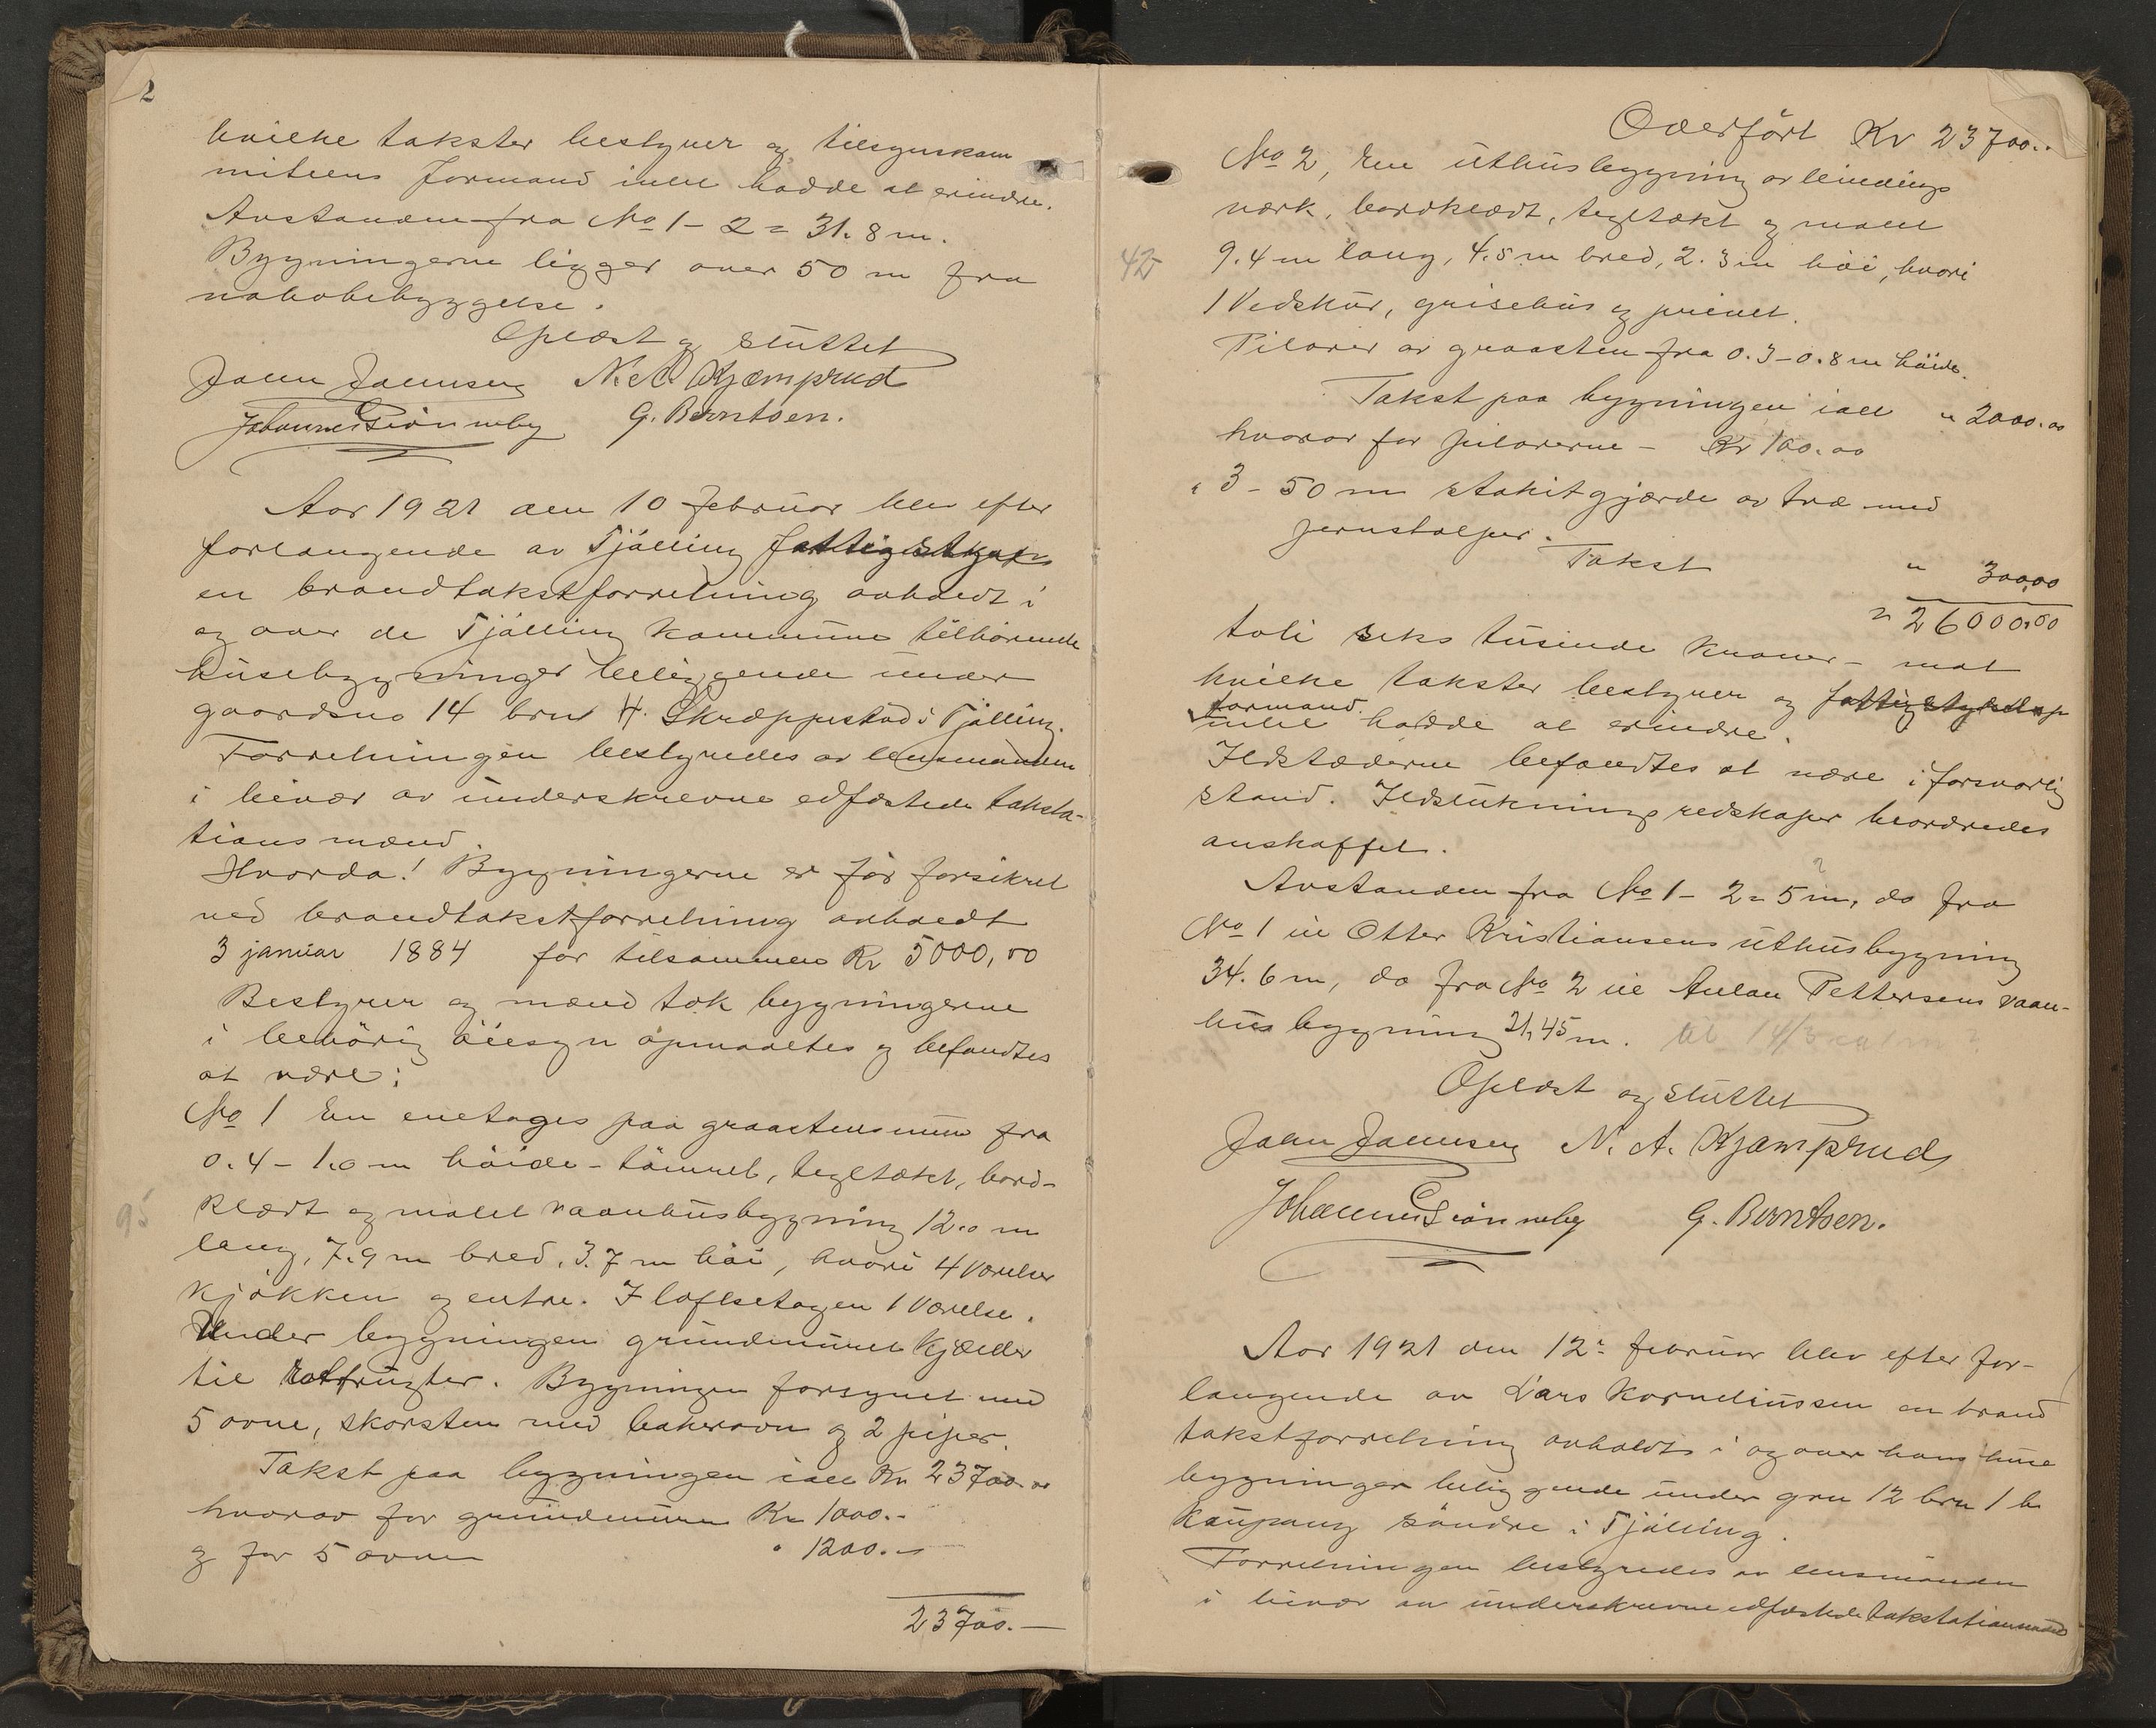 2
hvilke takster bestyrer og tilsynskom
miteens formand intet hadde at erindre.
Avstanden fra No 1 - 2 = 31.8 m.
Bygningerne ligger over 50 m fra
nabobebyggelse.
Oplæst og sluttet
John Johnsen N. A. Kjæmprud
Johannes Grønneby G. Berntsen.
Aar 1921 den 10 februar blev efter
forlangende av Tjølling fattigstyre
en brandtakstforretning avholdt i
og over de Tjølling kommune tilhørende
husebygninger beliggende under
gaardsno 14 brno 4. Skreppestad i Tjølling.
Forretningen bestyredes av lensmanden
i bivær av underskrevne edfæstede taksta-
tionsmænd.
Hvorda! Bygningerne er før forsikret
ved brandtakstforretning avholdt
3 januar 1884 for tilsammen Kr 5000,00
Bestyrer og mænd tok bygningerne
i behørig øiesyn opmaaltes og befandtes
at være:
No 1 En enetages paa graastensmur fra
0.4 - 1.0 m høide - tømret, tegltækt, bord-
95
klædt og malet vaanhusbygning 12.0 m
lang, 7.9 m bred, 3.7 m høi, hvori 4 værelser
kjøkken og entre. I loftsetagen 1 værelse.
Under bygningen grundmuret kjælder
til rotfrugter. Bygningen forsynet med
5 ovne, skorsten med bakerovn og 2 piper.
Takst paa bygningen ialt Kr 23700.00
hvorav for grundmuren Kr 1000.-
og for 5 ovner " 1200.-
23700.-
Overført Kr 23700..
No 2, En uthusbygning av bindings
værk, bordklædt, tegltækt og malet
42
9.4 m lang, 4.5 m bred, 2.3 m høi, hvori
1 Vedskur, grisehus og privet.
Pilarer av graasten fra 0.3 - 0.8 m høide.
Takst paa bygningen ialt " 2000.00
hvorav for pilarerne - Kr 100.00
" 3 - 50 m stakitgjærde av træ med
jernstolper.
Takst " 300,00
" 26000.00
toti seks tusinde kroner - mot
hvilke takster bestyrer og fattigstyrets
formand
intet hadde at erindre.
Ildstæderne befandtes at være i forsvarlig
stand. Ildslukningsredskaper beordredes
anskaffet.
?
Avstanden fra No 1 - 2 = 5 m, do fra
No 1 til Otter Kristiansens uthusbygning
34.6 m, do fra No 2 til Anton Pettersens vaan-
husbygning 21,45 m.
Oplæst og sluttet
John Johnsen N. A. Kjæmprud
Johannes Grønneby G. Berntsen.
Aar 1921 den 12: februar blev efter for-
langende av Lars Korneliussen en brand
takstforretning avholdt i og over hans huse
bygninger beliggende under gno 12 brn 1 b
Kaupang søndre i Tjølling.
Forretningen bestyredes av lensmanden
i bivær av underskrevne edfæstede takstationsmænd